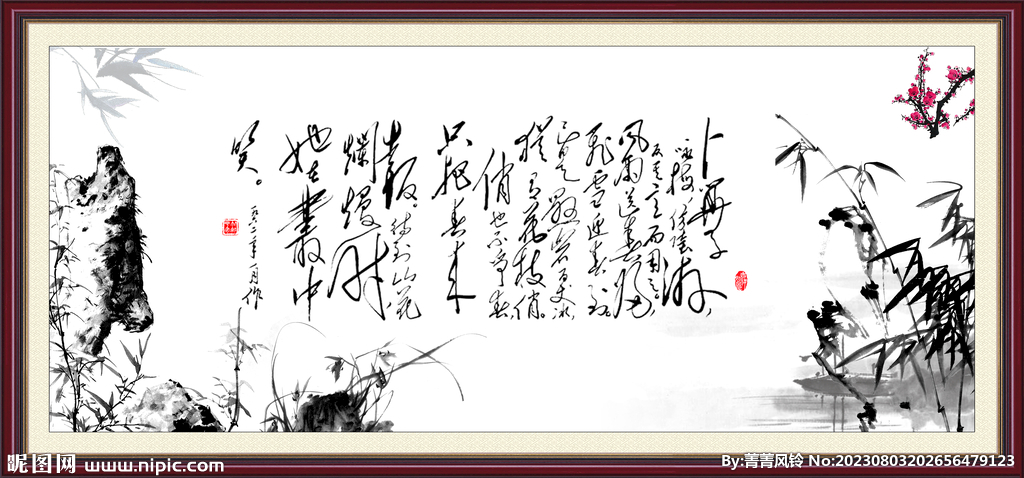 卜算子
咏梅，读陆游，
反其意而用之。
风雨送春归，
飞雪迎春到
已是悬崖百丈冰
犹有花枝俏。
俏也不争春
只把春来
报，待到山花
烂熳时
她在丛中
笑。
昵图网 www.nipic.com
By:菁菁风铃 No:20230803202656479123